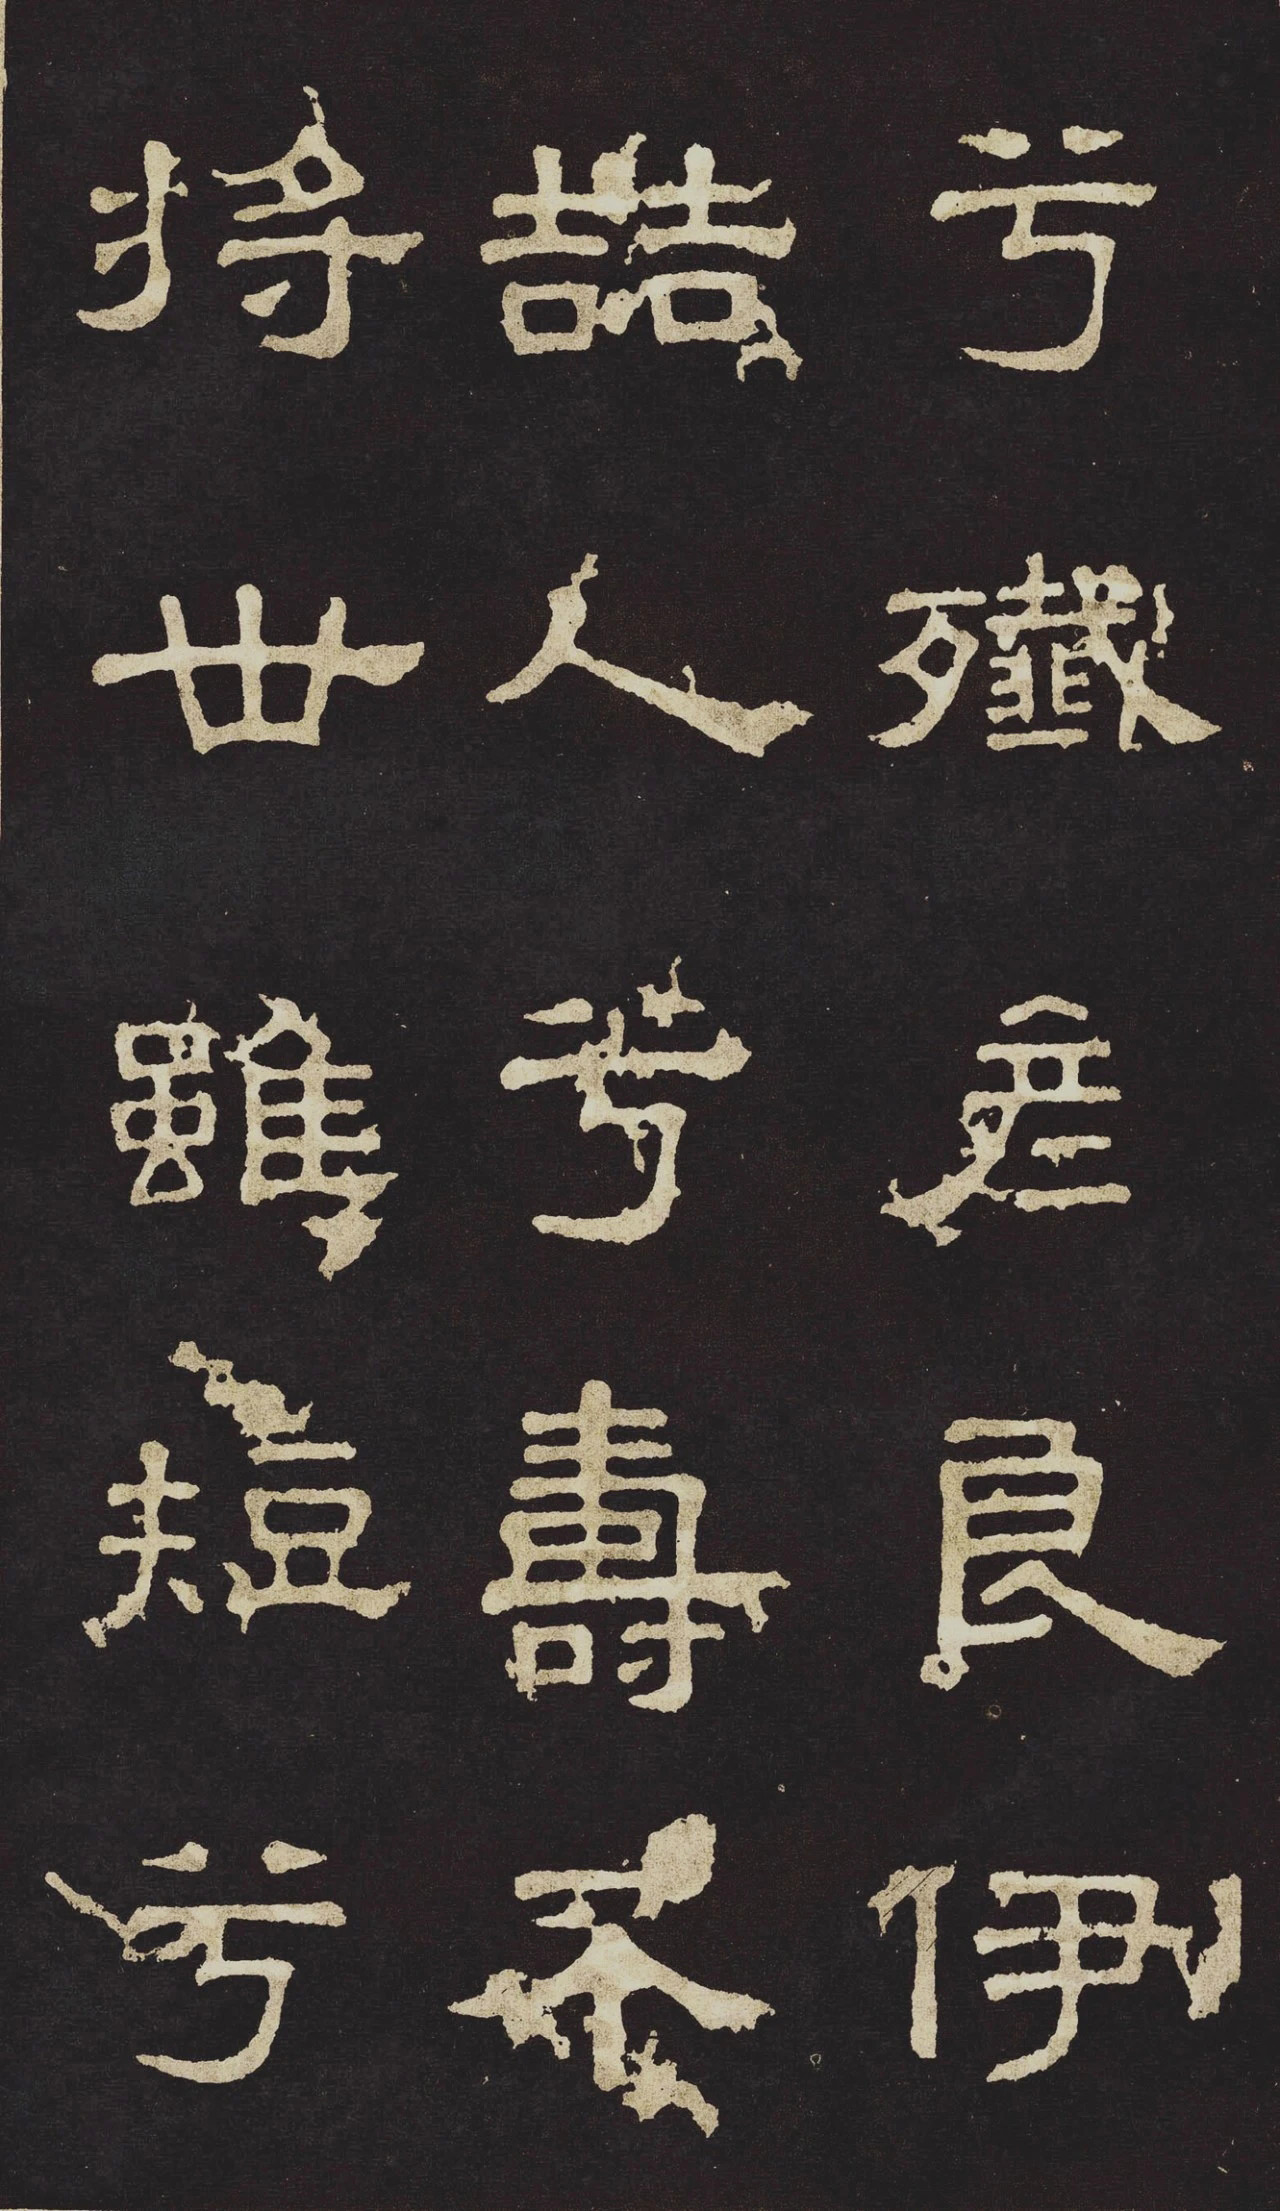 兮殲彥良伊
喆人兮壽不
將世雖短兮